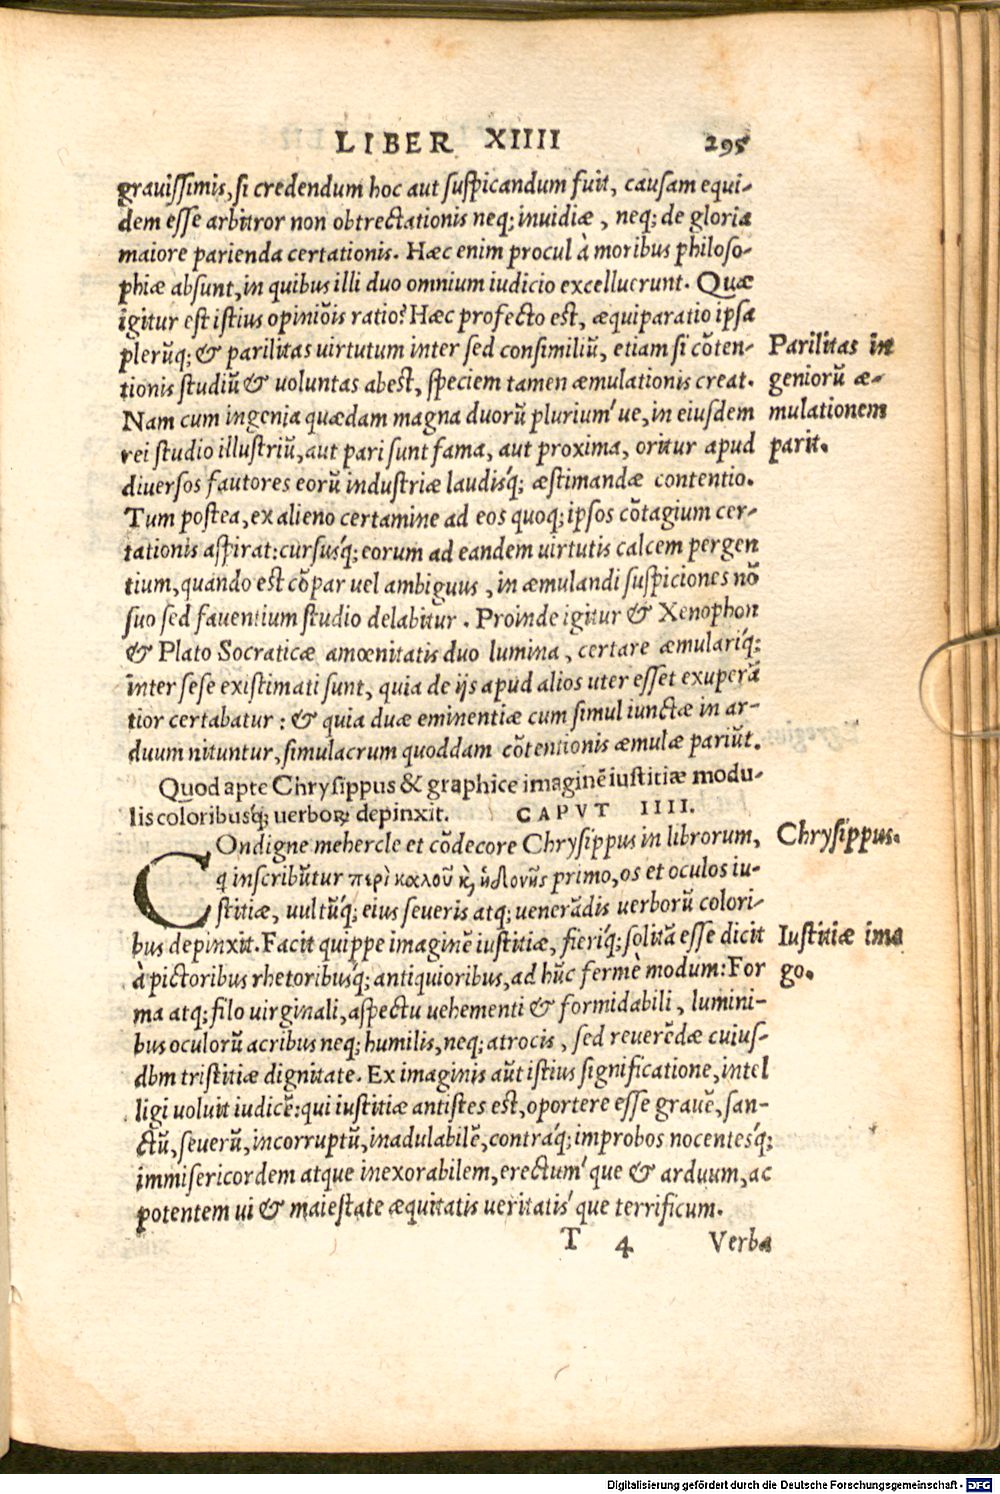 LIBER XIIII 295
grauissimis, si credendum hoc aut suspicandum fuit, causam equi-
dem esse arbitror non obtrectationis neq; inuidiæ, neq; de gloria
maiore parienda certationis. Hæc enim procul à moribus philoso-
phiæ absunt, in quibus illi duo omnium iudicio excelluerunt. Quæ
igitur est istius opiniõis ratio? Hæc profecto est, æquiparatio ipsa
plerũq; & parilitas uirtutum inter sed consimiliũ, etiam si cõten-
tionis studiũ & uoluntas abest, speciem tamen æmulationis creat.
Nam cum ingenia quædam magna duorũ plurium' ue, in eiusdem
rei studio illustriũ, aut pari sunt fama, aut proxima, oritur apud
diuersos fautores eorũ industriæ laudis'q; æstimandæ contentio.
Tum postea, ex alieno certamine ad eos quoq; ipsos cõtagium cer-
tationis aspirat: cursus'q; eorum ad eandem uirtutis calcem pergen
tium, quando est cõpar uel ambiguus, in æmulandi suspiciones nõ
suo sed fauentium studio delabitur. Proinde igitur & Xenophon
& Plato Socraticæ amœnitatis duo lumina, certare æmulari'q;
inter sese existimati sunt, quia de ijs apud alios uter esset exuperã
tior certabatur: & quia duæ eminentiæ cum simul iunctæ in ar-
duum nituntur, simulacrum quoddam cõtentionis æmulæ pariũt.
Parilitas in
geniorũ æ-
mulationem
parit.
Quod apte Chrysippus & graphice imaginẽ iustitiæ modu-
lis coloribus'q; uerborꝝ depinxit. CAPVT IIII.
COndigne mehercle et cõdecore Chrysippus in librorum,
q inscribũtur περὶ καλοῦ κ̀ ἡδονῆς primo, os et oculos iu-
stitiæ, uultũ'q; eius seueris atq; uenerãdis uerborũ colori-
bus depinxit. Facit quippe imaginẽ iustitiæ, fieri'q; solitã esse dicit
à pictoribus rhetoribus'q; antiquioribus, ad hũc fermè modum: For
ma atq; filo uirginali, aspectu uehementi & formidabili, lumini-
bus oculorũ acribus neq; humilis, neq; atrocis, sed reuerẽdæ cuius-
dbm tristitiæ dignitate. Ex imaginis aũt istius significatione, intel
ligi uoluit iudicẽ: qui iustitiæ antistes est, oportere esse grauẽ, san-
ctũ, seuerũ, incorruptũ, inadulabilẽ, contra'q; improbos nocentes'q;
immisericordem atque inexorabilem, erectum' que & arduum, ac
potentem ui & maiestate æquitatis ueritatis' que terrificum.
Chrysippus.
Iustitiæ ima
go.
T 4 Verba
Digitalisierung gefördert durch die Deutsche Forschungsgemeinschaft - DFG